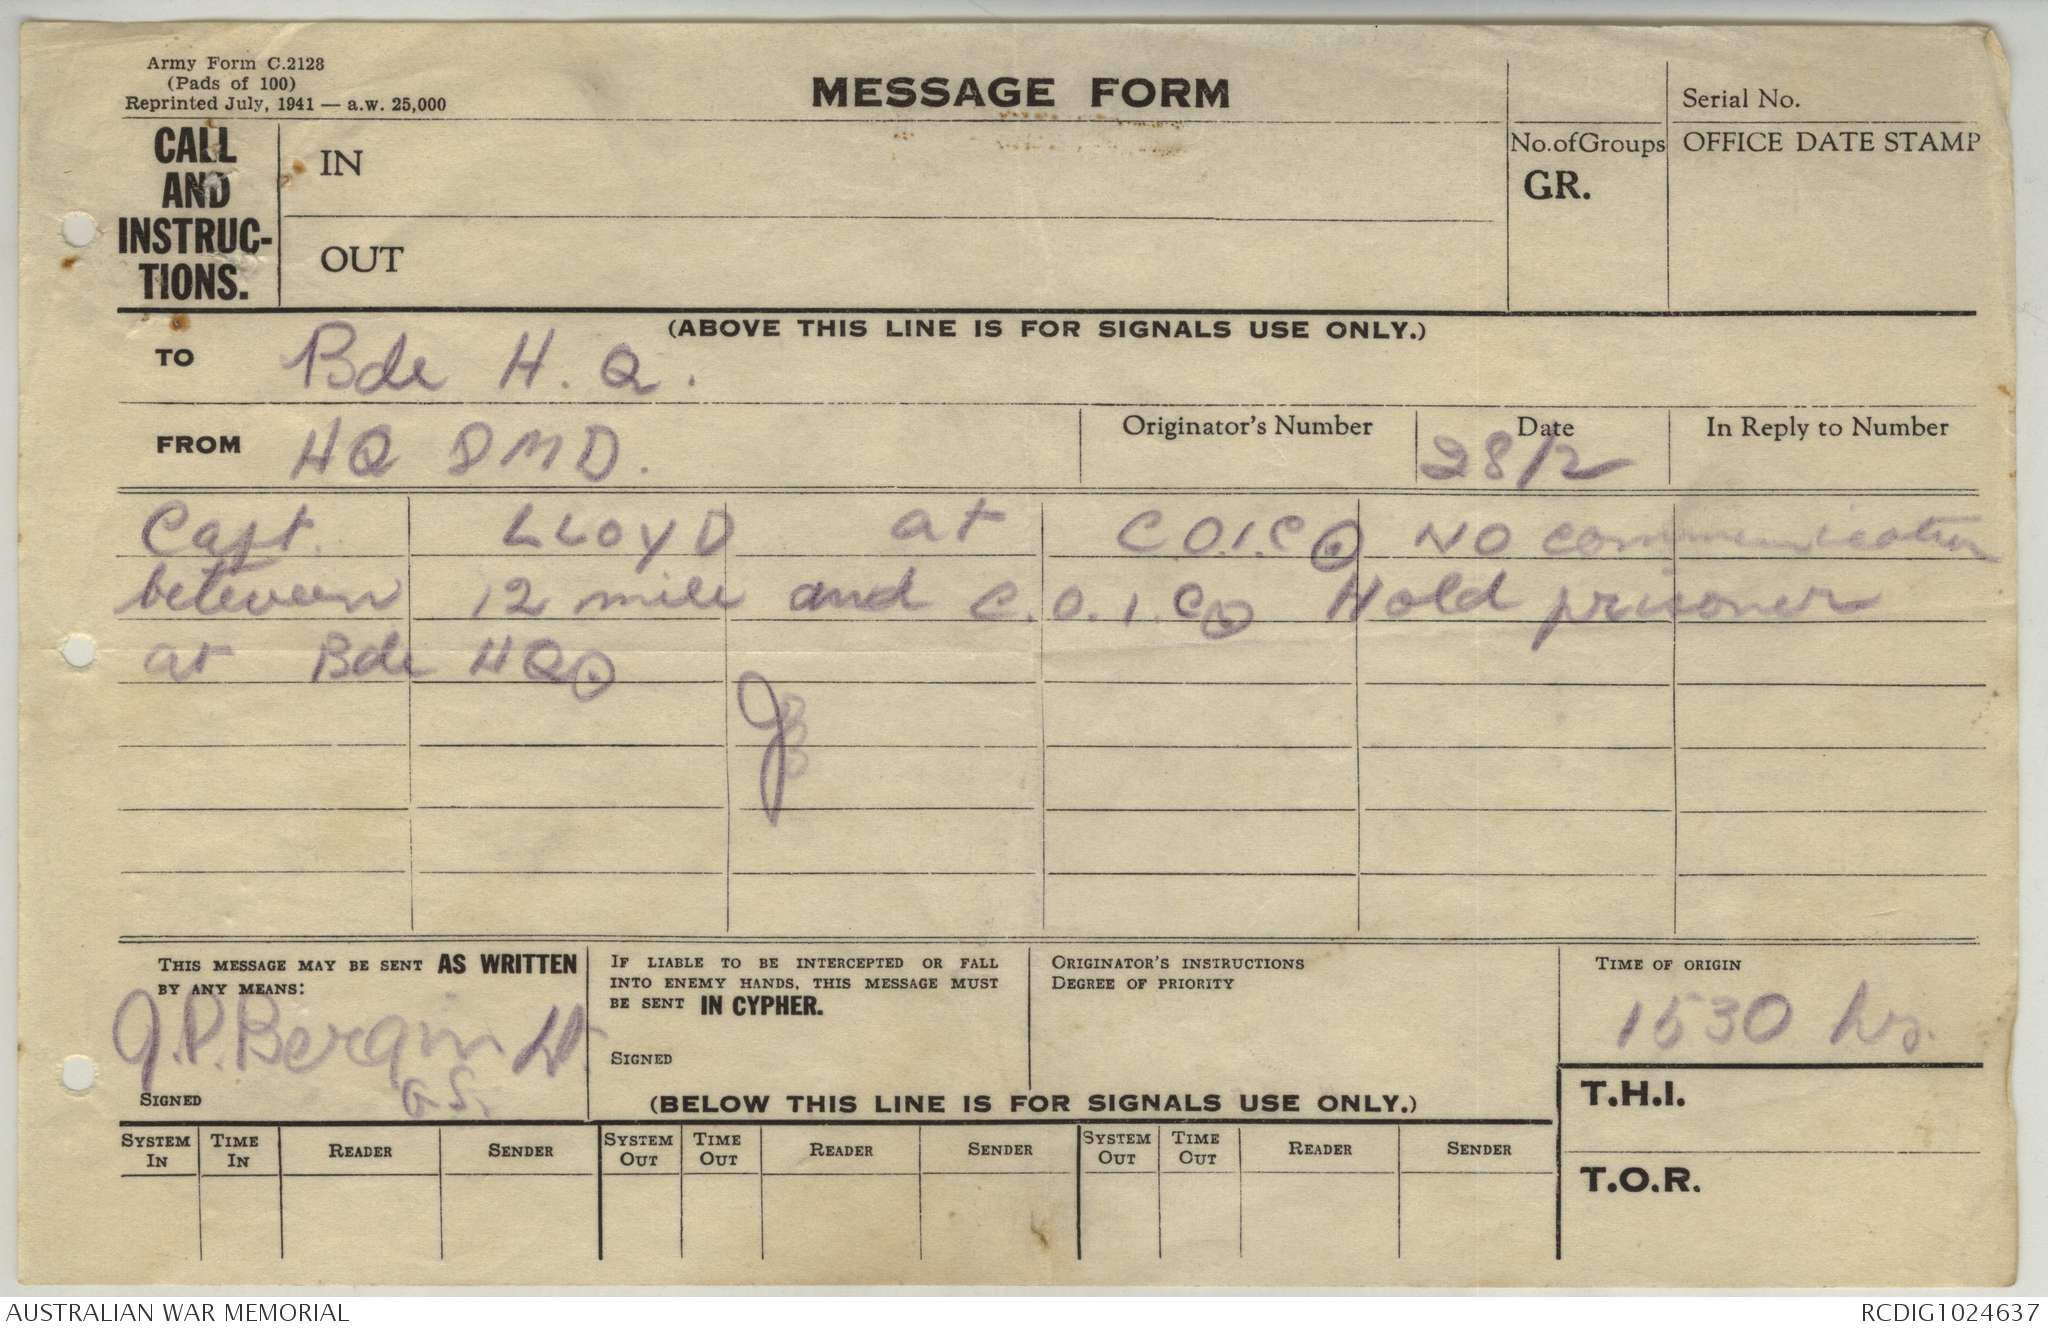 Army Form C.2128
(Pads of 100)
Reprinted July, 1941 — a.w. 25,000
MESSAGE FORM
Serial No.
CALL
AND
INSTRUC-
TIONS.
IN
OUT
No. of Groups
GR.
OFFICE DATE STAMP
(ABOVE THIS LINE IS FOR SIGNALS USE ONLY.)
TO Bde H.Q.
FROM HQ 8 M D.
Originator's Number
Date 28/2
In Reply to Number
Capt. LLOYD at C.O.I.C ⊙ NO communication
between 12 mile and C.O.I.C ⊙ Hold prisoner
at Bde HQ ⊙
THIS MESSAGE MAY BE SENT AS WRITTEN
BY ANY MEANS:
J.P. Bergin Lt.
G.S.
SIGNED
IF LIABLE TO BE INTERCEPTED OR FALL
INTO ENEMY HANDS, THIS MESSAGE MUST
BE SENT IN CYPHER.
SIGNED
ORIGINATOR'S INSTRUCTIONS
DEGREE OF PRIORITY
TIME OF ORIGIN
1530 hrs.
(BELOW THIS LINE IS FOR SIGNALS USE ONLY.)
T.H.I.
T.O.R.
SYSTEM IN TIME IN READER SENDER SYSTEM OUT TIME OUT READER SENDER SYSTEM OUT TIME OUT READER SENDER
AUSTRALIAN WAR MEMORIAL
RCDIG1024637